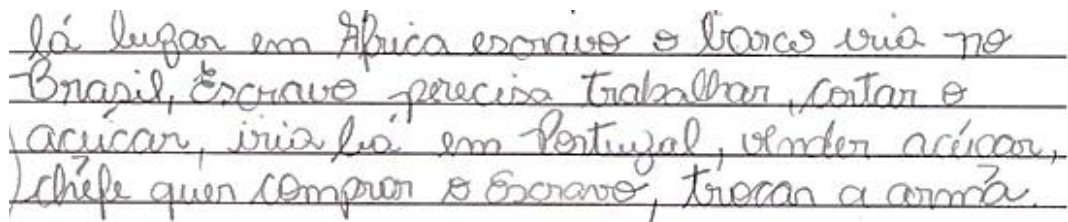 lá lugar em África escravo o barco iria no
Brasil, Escravo perecisa trabalhar, cortar o
acúcar, iria lá em Portugal, vender acúcar,
chefe quer comprar o Escravo, trocar a arma.